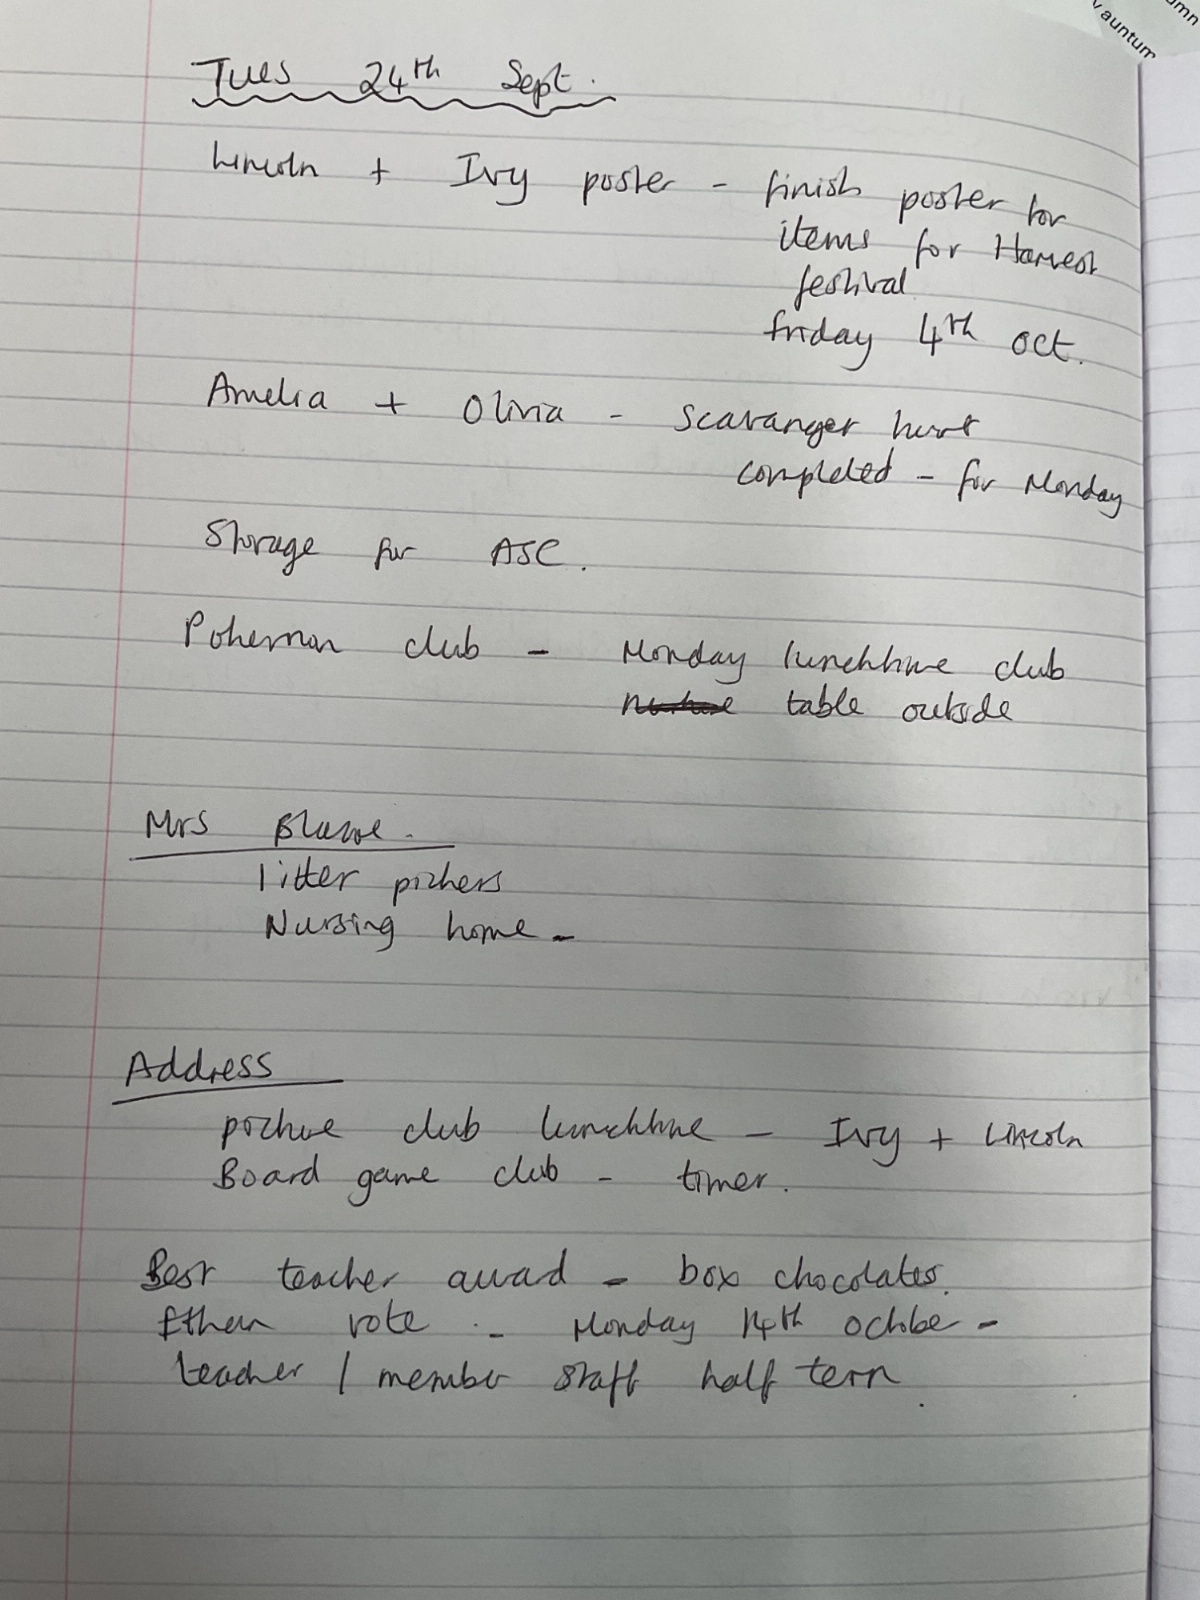 Tues 24th Sept.
Lincoln + Ivy poster - finish poster for
items for Harvest
festival
friday 4th oct.
Amelia + Olivia - Scavanger hunt
completed - for Monday
Storage for ASC.
Pokemon club - Monday lunchtime club
table outside
Mrs
litter pickers
Nursing home -
Address
picture club lunchtime - Ivy + Lincoln
Board game club - timer.
Best teacher award - box chocolates.
Ethan vote - Monday 14th October -
teacher / member staff half term.
auntum